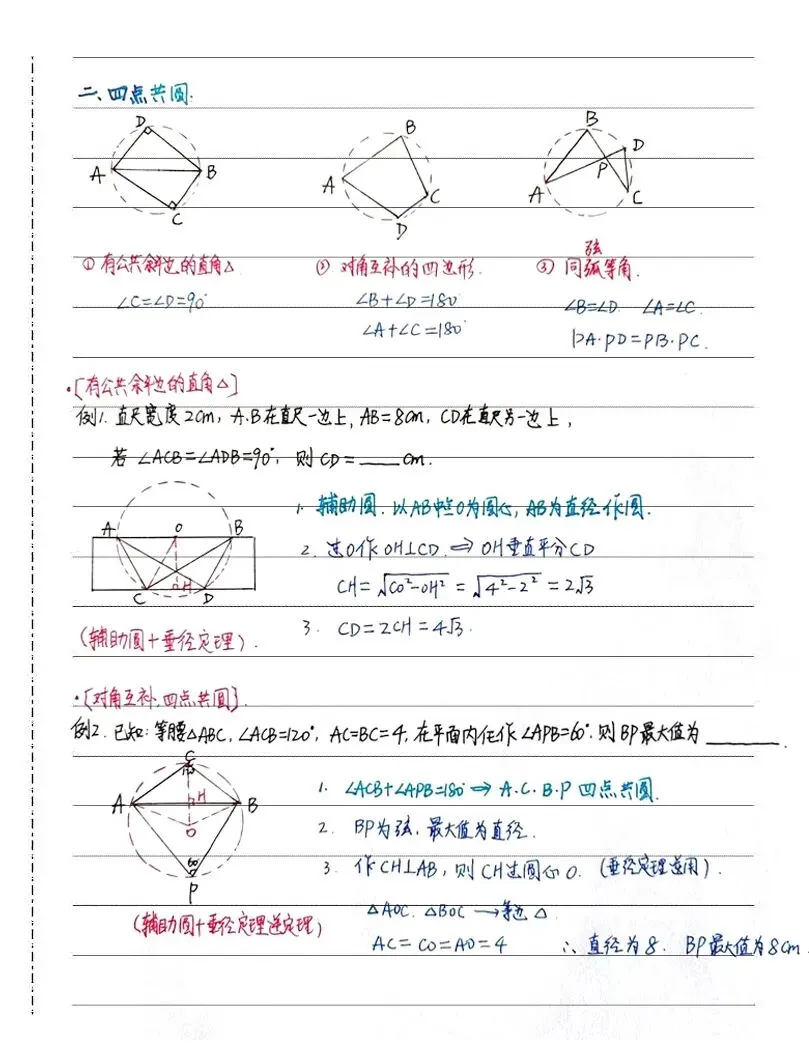 二、四点共圆.
D
A
B
C
B
A
C
D
B
D
P
A
C
弦
① 有公共斜边的直角△
② 对角互补的四边形.
③ 同弧等角.
∠C=∠D=90°
∠B+∠D=180°
∠B=∠D. ∠A=∠C.
∠A+∠C=180°
PA·PD=PB·PC.
·[有公共斜边的直角△]
例1. 直尺宽度2cm, A.B在直尺一边上, AB=8cm, CD在直尺另一边上,
若 ∠ACB=∠ADB=90°, 则 CD=____cm.
1. 辅助圆. 以AB中点O为圆心, AB为直径作圆.
A
O
B
2. 过O作OH⊥CD. ⇒ OH垂直平分CD
H
CH=√CO²-OH² = √4²-2² = 2√3
C
D
3. CD=2CH=4√3.
(辅助圆+垂径定理).
·[对角互补,四点共圆].
例2. 已知: 等腰△ABC, ∠ACB=120°, AC=BC=4, 在平面内任作∠APB=60°. 则BP最大值为________.
C
1. ∠ACB+∠APB=180° ⇒ A.C.B.P 四点共圆.
A
H
B
O
2. BP为弦, 最大值为直径.
60°
3. 作CH⊥AB, 则CH过圆心O. (垂径定理逆用).
P
△AOC. △BOC → 等边△
(辅助圆+垂径定理逆定理)
AC=CO=AO=4 ∴直径为8. BP最大值为8cm.